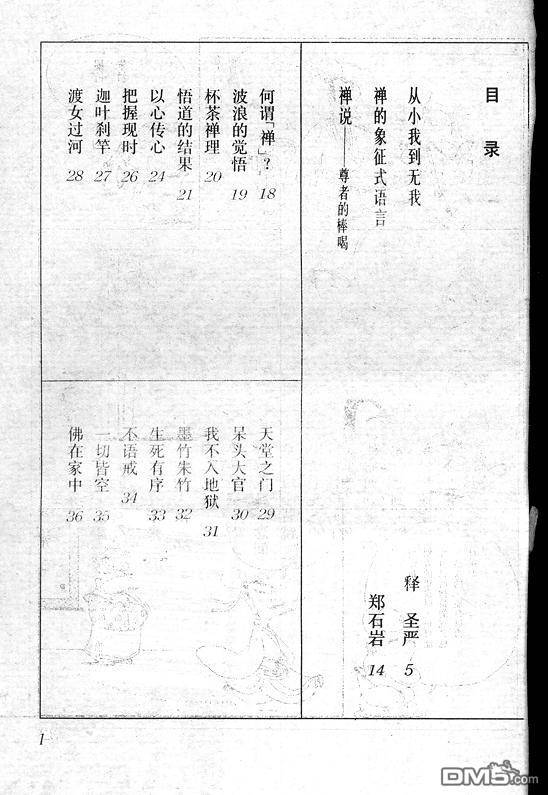 目录
从小我到无我 释圣严 5
禅的象征式语言 郑石岩 14
禅说——尊者的棒喝
何谓「禅」? 18
波浪的觉悟 19
杯茶禅理 20
悟道的结果 21
以心传心 24
把握现时 26
迦叶刹竿 27
渡女过河 28
天堂之门 29
呆头大官 30
我不入地狱 31
墨竹朱竹 32
生死有序 33
不语戒 34
一切皆空 35
佛在家中 36
1
DM5.com